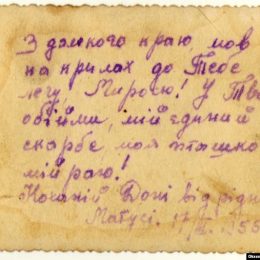 З далекого краю, мов
на крилах до Тебе
лечу Миросю! У Тво
обійми, мій єдиний
скарбе, моя пташко
мій раю!
Коханій Доні від рідн
Матусі. 17/ 1955